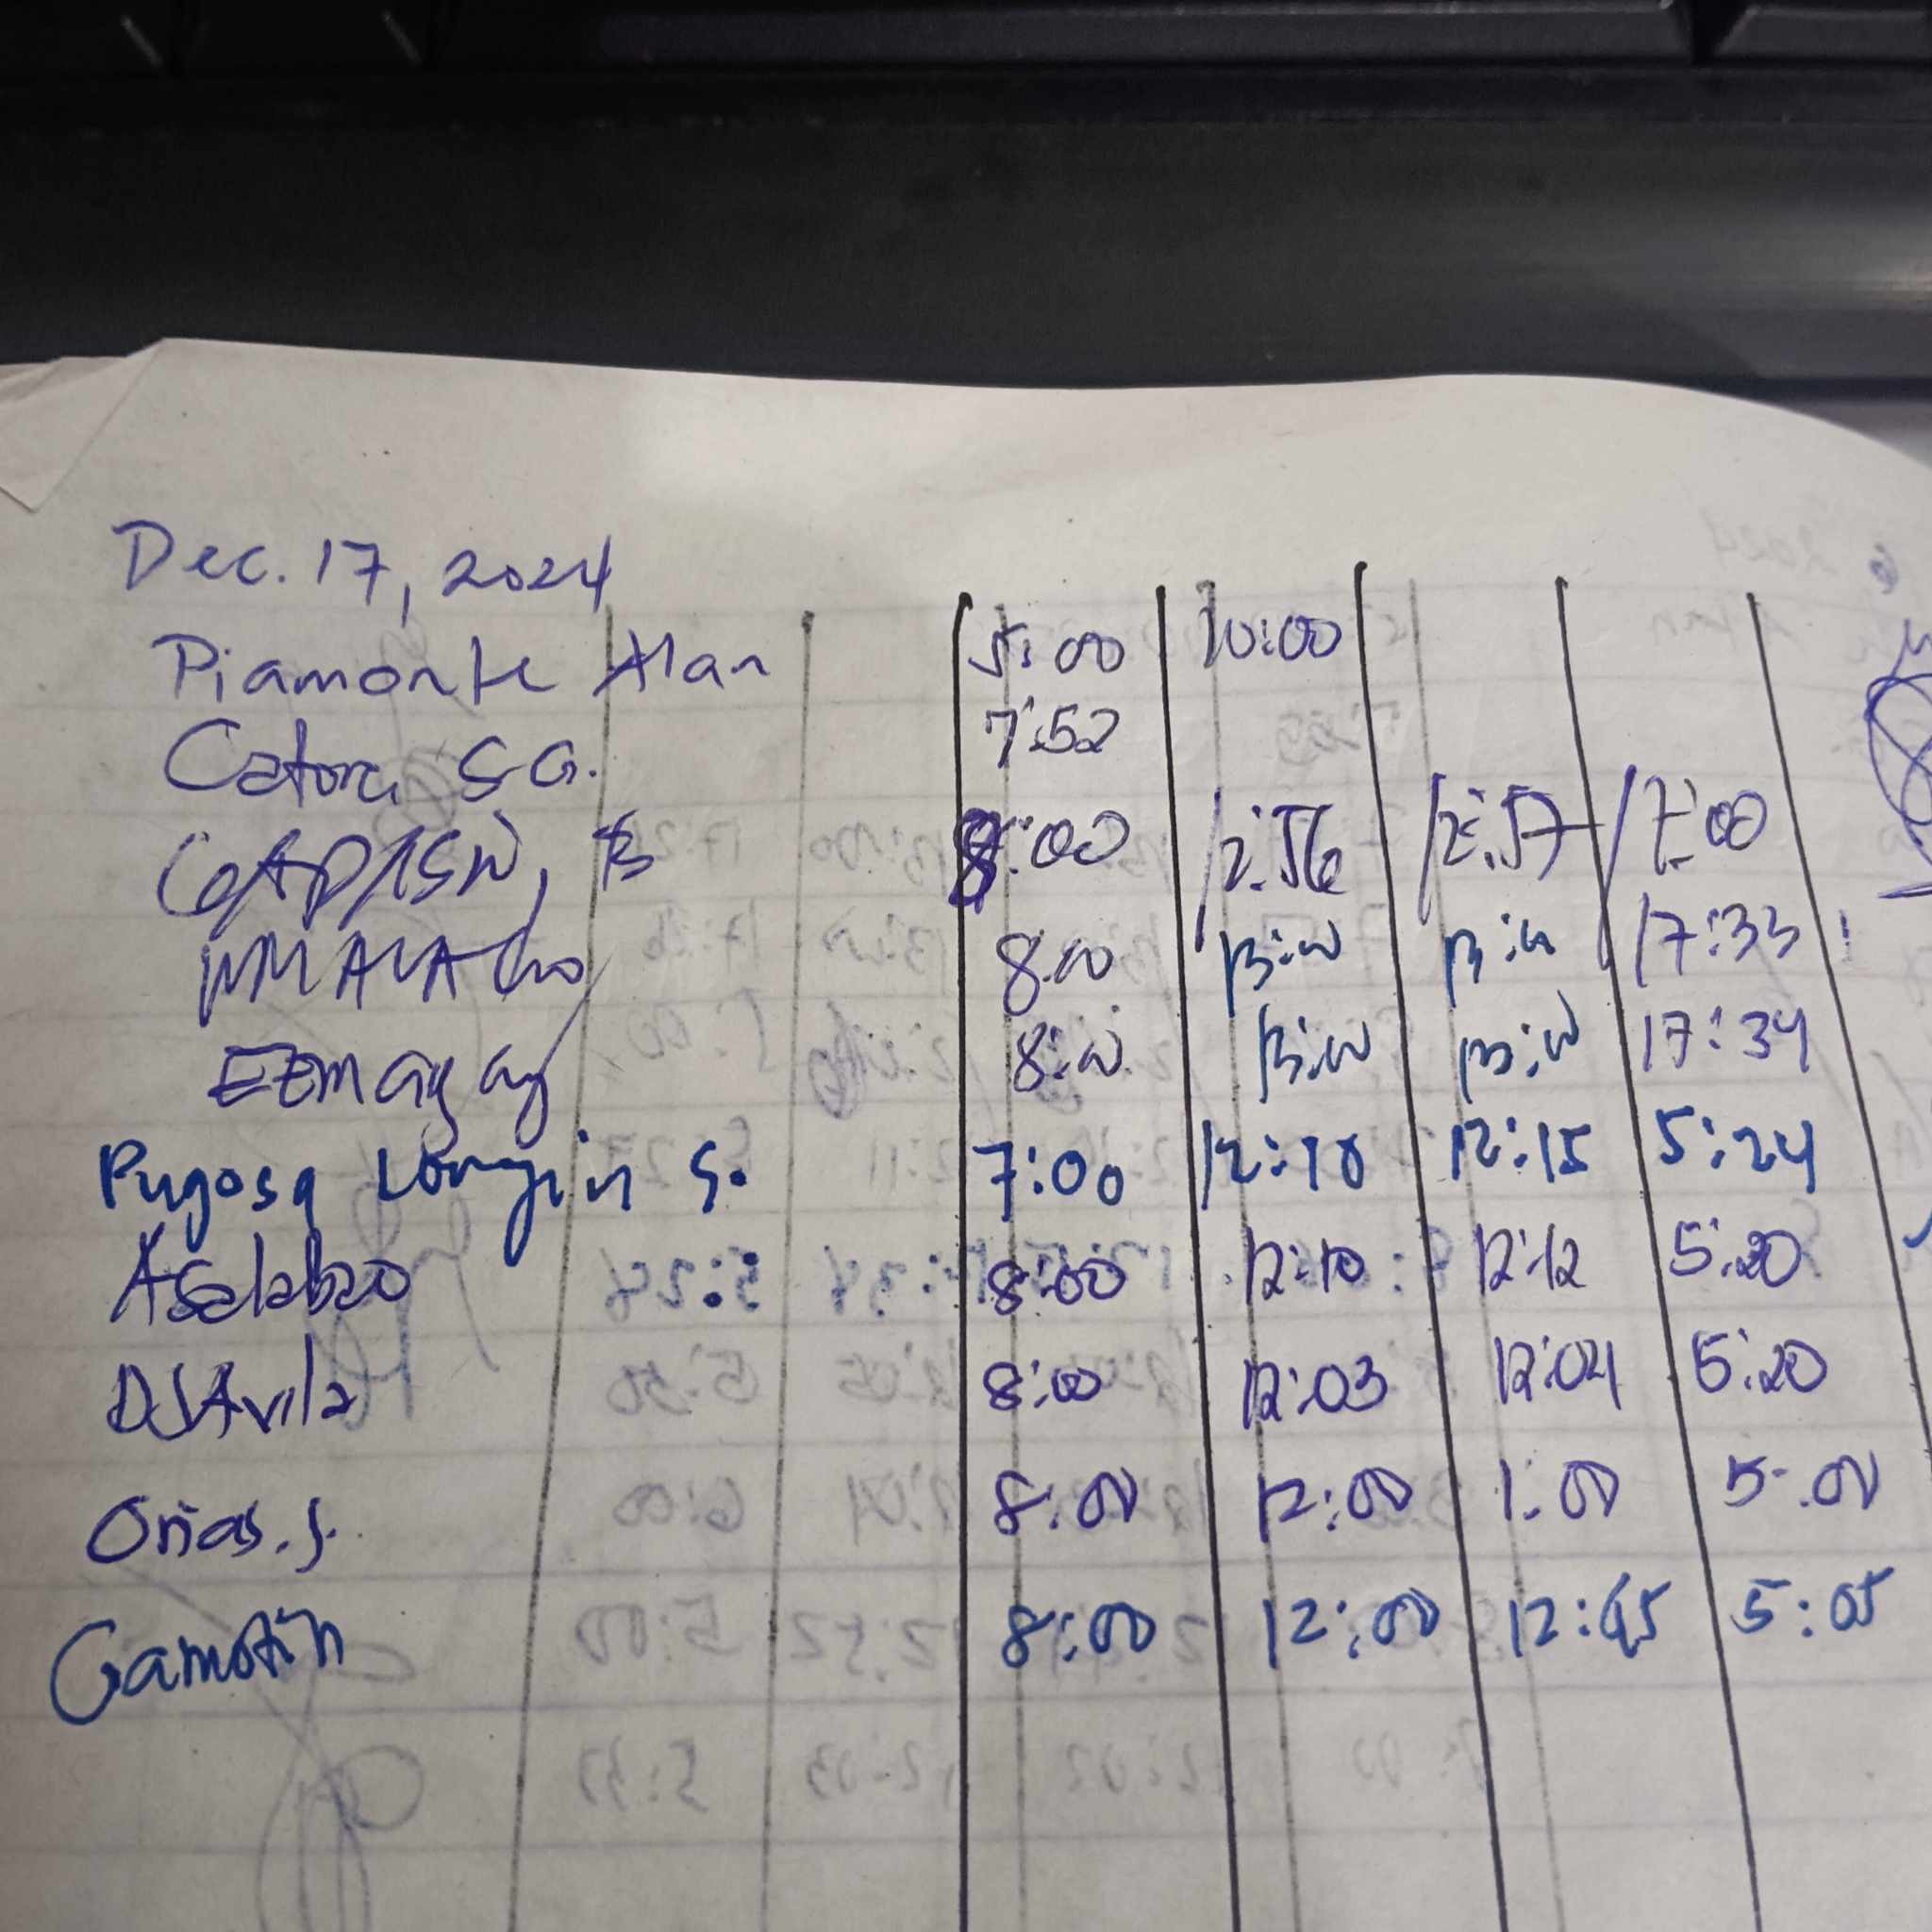 Dec. 17, 2024
Piamonte Alan 5:00 10:00
Catora SG. 7:52
8:00 12:56 12:57 17:00
8:00 13:00 13:00 17:33
8:00 13:00 13:00 17:34
Pugosa Longin S. 7:00 12:10 12:15 5:24
ASalabao 8:00 12:10 12:12 5:20
DJAvila 8:00 12:03 12:04 5:20
Orias. J. 8:00 12:00 1:00 5:00
Gamotin 8:00 12:00 12:45 5:05